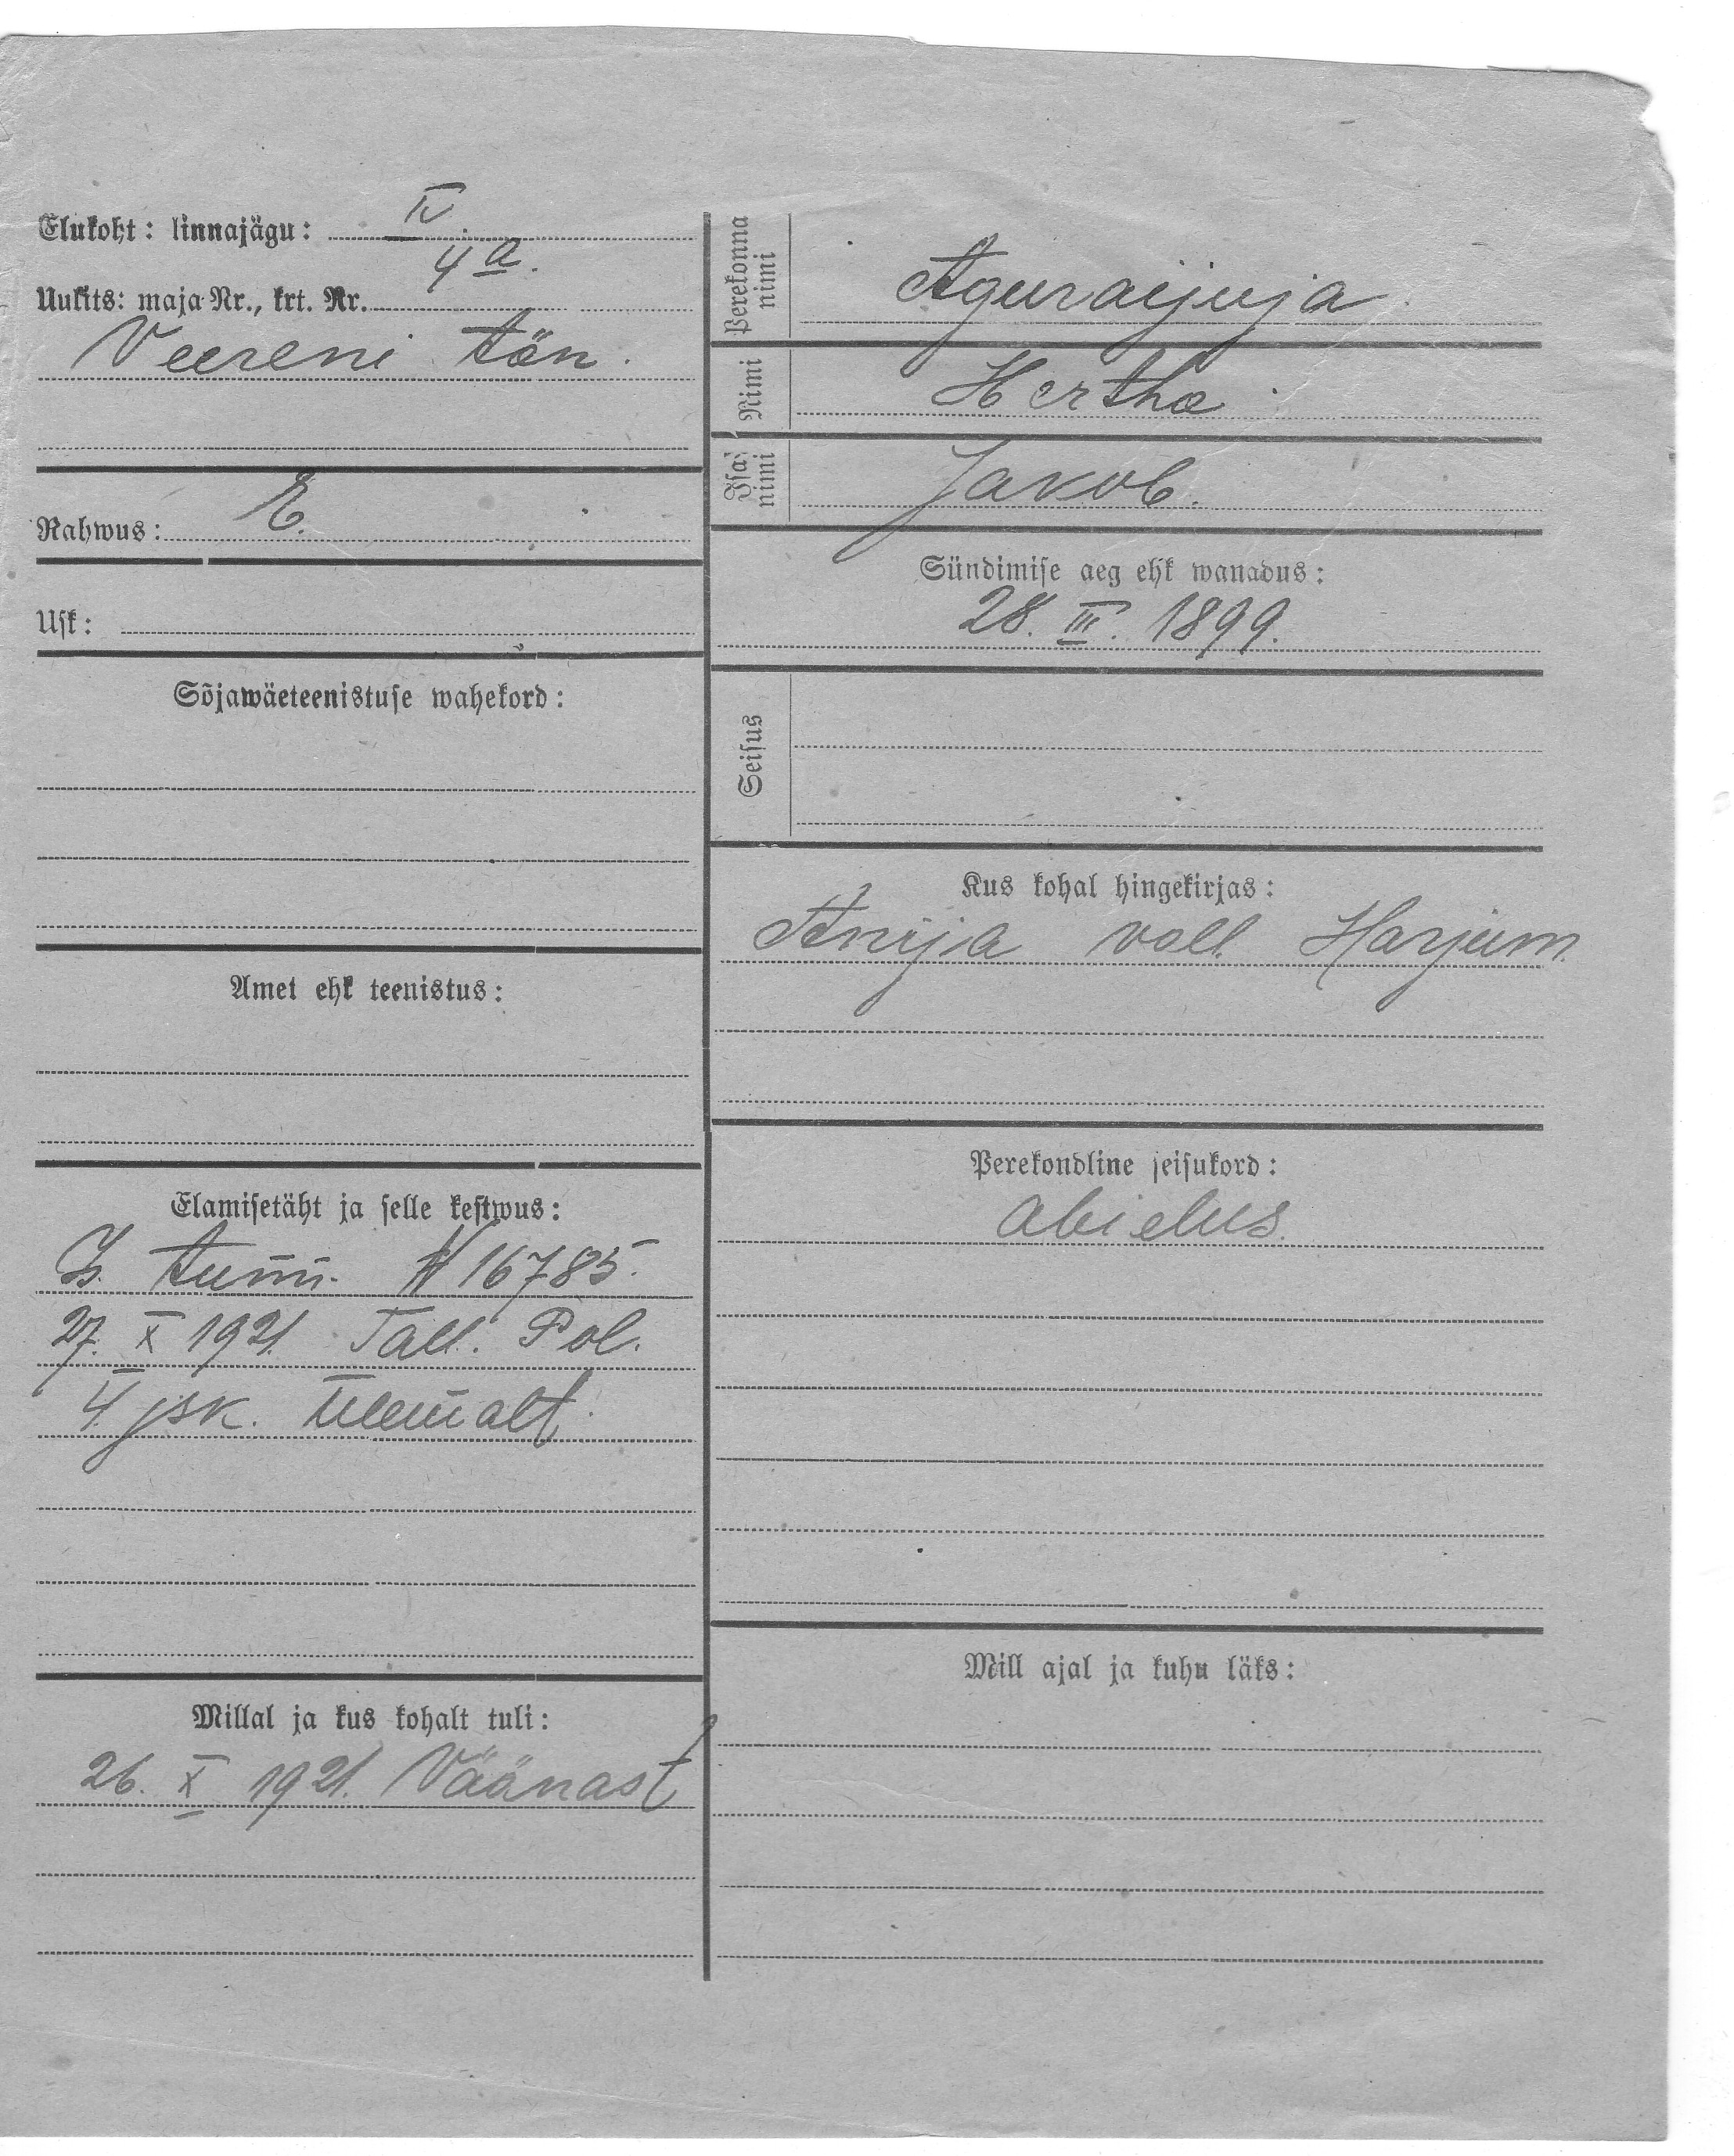 Elukoht: linnajägu: IV
Uulits: maja Nr., krt. Nr. 4 a.
Veereni tän.
Rahwus: E.
Usk:
Sõjawäeteenistuse wahekord:
Amet ehk teenistus:
Elamisetäht ja selle kestwus:
Is. tunn. N 16785.
27. X 1921. Tall. Pol.
4. jsk. ülemalt.
Millal ja kus kohalt tuli:
26. X 1921. Väänast
Perekonna nimi
Aguraijuja
Nimi Hertha
Isa nimi Jakob.
Sündimise aeg ehk wanadus:
28. III. 1899.
Seisus
Kus kohal hingekirjas:
Anija vall. Harjum.
Perekondline seisukord:
abielus.
Mill ajal ja kuhu läks: